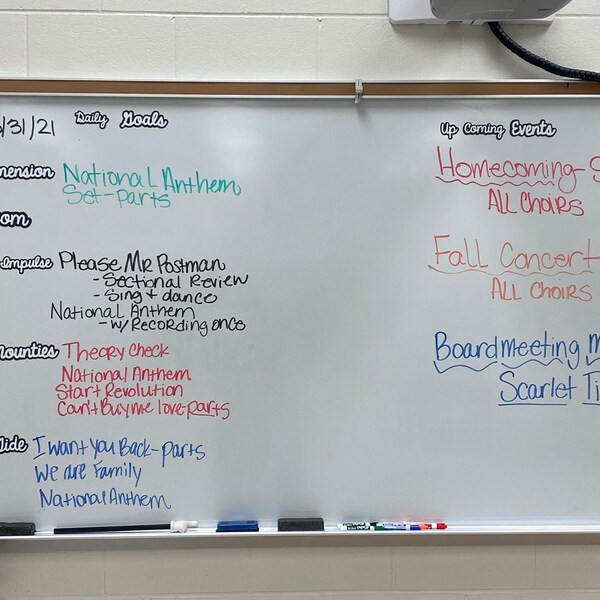 /31/21 Daily Goals
National Anthem
Set-parts
Impulse Please MR Postman
- Sectional Review
- Sing + dance
National Anthem
- w/ Recording once
Theory Check
National Anthem
Start Revolution
Can't Buy me love-parts
I want you Back-parts
We are Family
National Anthem
Up Coming Events
Homecoming-
ALL CHOIRS
Fall Concert
ALL CHOIRS
Board meeting
Scarlet